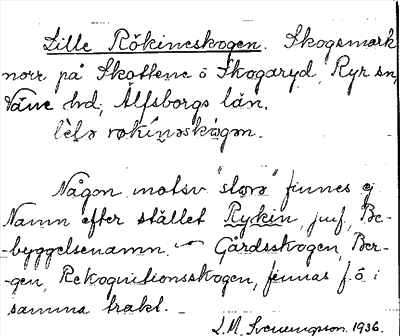 Lille Rökineskogen. Skogsmark
norr på Skottene ö Skogaryd, Ryr sn,
Väne hd, Älfsborgs län.
lèlə rökínəskògən.
Någon motsv "störə" finnes ej
Namn efter stället Rykin, jmf. Be-
byggelsenamn. — Gårdsskogen, Ber-
gen, Rekognitionsskogen, finnas f. ö. i
samma trakt. -
L. M. Svenungsson. 1936.